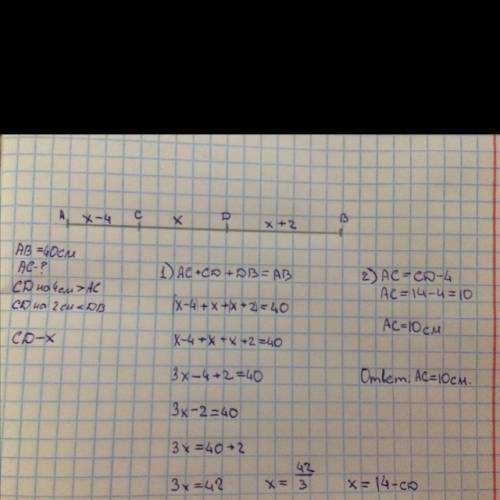 A x-4 C x D x+2 B
AB=40см
AC-?
CD на 4см>AC
CD на 2см<DB
CD-x
1) AC+CD+DB=AB
x-4+x+x+2=40
x-4+x+x+2=40
3x-4+2=40
3x-2=40
3x=40+2
3x=42 x=42/3 x=14-CD
2) AC=CD-4
AC=14-4=10
AC=10см
Ответ: AC=10см.